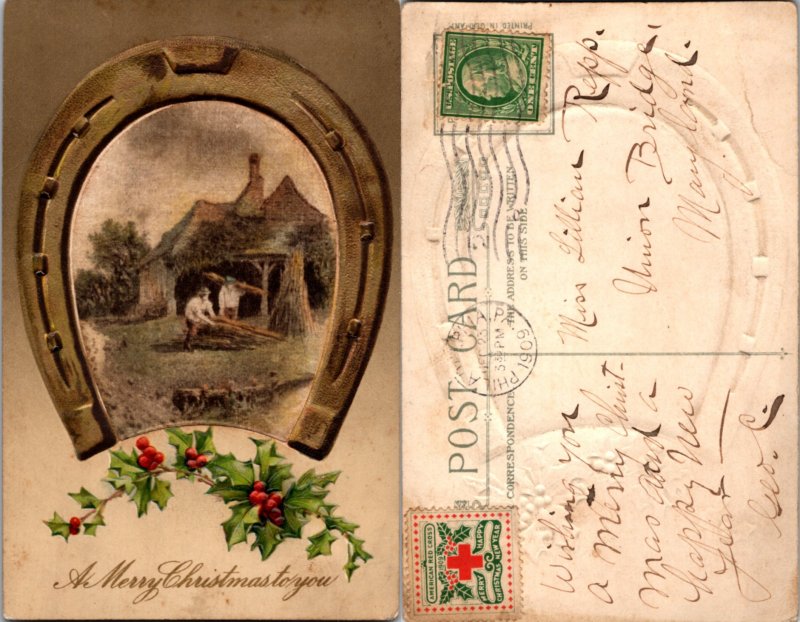 A Merry Christmas to you
PRINTED IN GERMANY
U.S. POSTAGE
ONE CENT
POST CARD
CORRESPONDENCE
THE ADDRESS TO BE WRITTEN
ON THIS SIDE
DEC 23
PM
1909
Miss Lillian Repp.
Union Bridge,
Maryland.
Wishing you
a merry Christ-
mas and a
Happy New
Year
Geo. C.
AMERICAN RED CROSS
1909
MERRY
CHRISTMAS
HAPPY
NEW YEAR